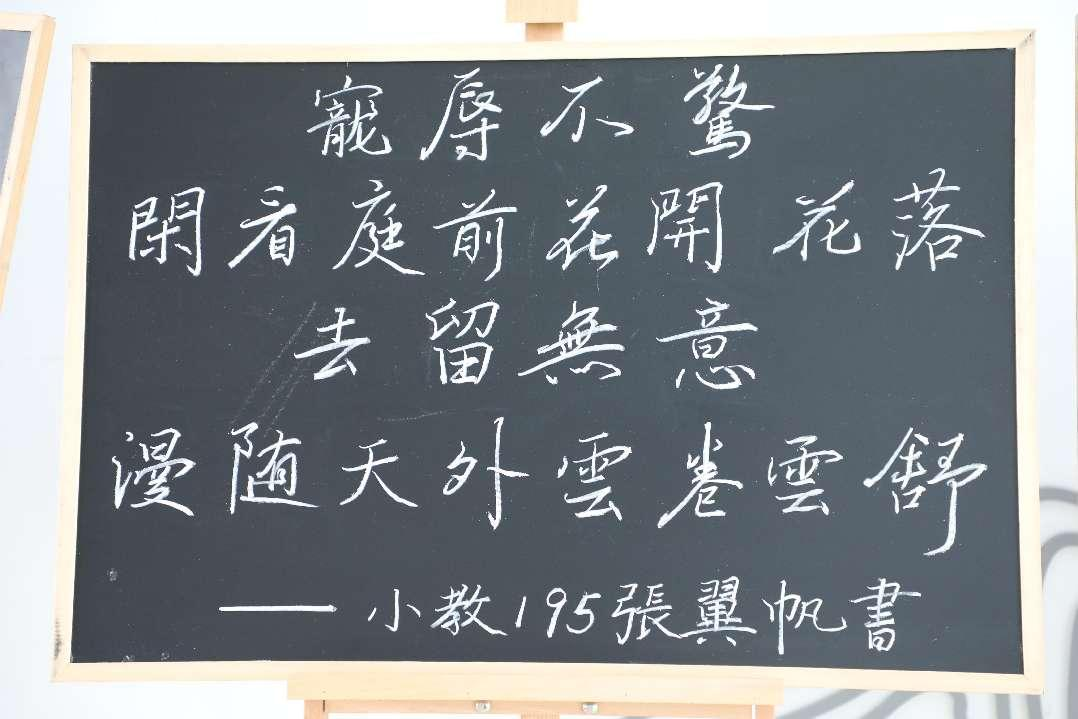 寵辱不驚
閑看庭前花開花落
去留無意
漫随天外雲卷雲舒
——小教195張翼帆書